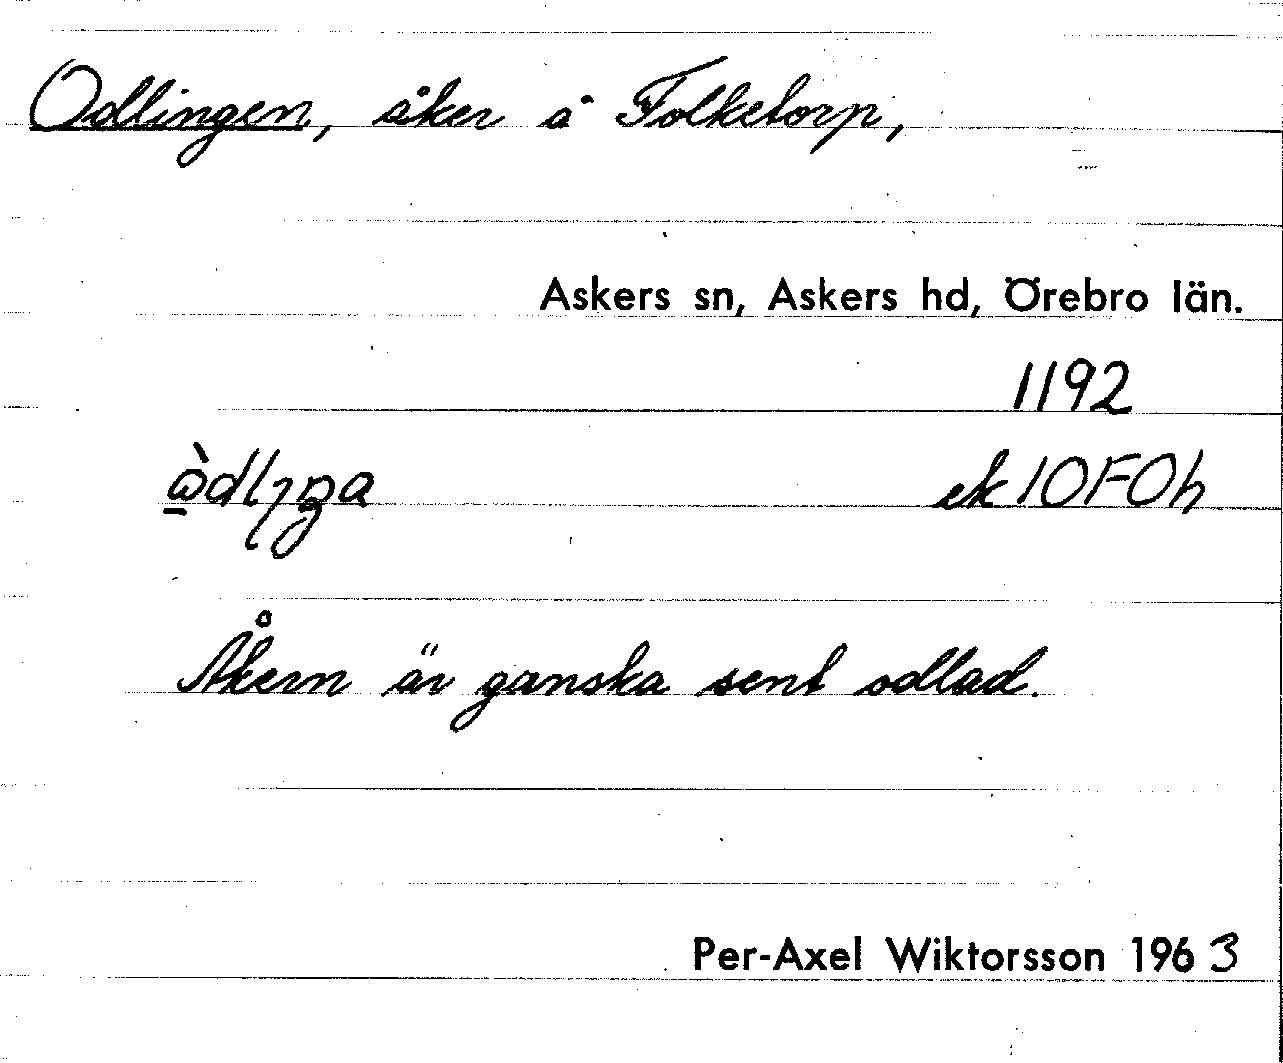 Odlingen, åker å Folketorp,
Askers sn, Askers hd, Örebro län.
1192
ek 10F0h
Åkern är ganska sent odlad.
Per-Axel Wiktorsson 1963